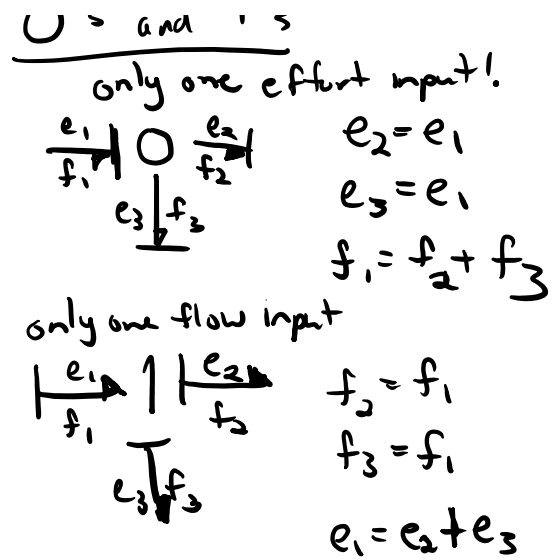 0's and 1's
only one effort input!
e₁ f₁ 0 e₂ f₂
e₃ f₃
e₂ = e₁
e₃ = e₁
f₁ = f₂ + f₃
only one flow input
e₁ f₁ 1 e₂ f₂
e₃ f₃
f₂ = f₁
f₃ = f₁
e₁ = e₂ + e₃